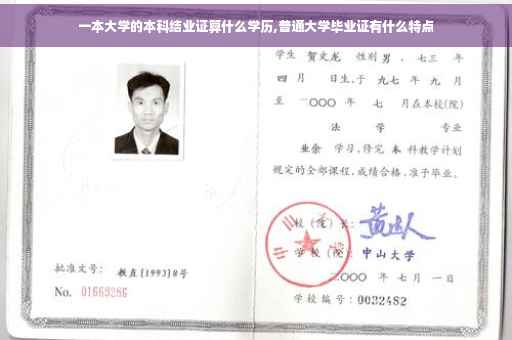 一本大学的本科结业证算什么学历,普通大学毕业证有什么特点
学生 贺文龙 性别 男 ，七三 年
四 月 日生，于 九七 年 九 月
至 二〇〇〇 年 七 月在本校(院)
法 学 专业
业余 学习，修完 本 科教学计划
规定的全部课程，成绩合格，准予毕业。
校(院)长：
学校(院)： 中山大学
二〇〇〇 年 七 月 一 日
批准文号： 教直[1993]8号
No. 01669286
学校编号：0032482